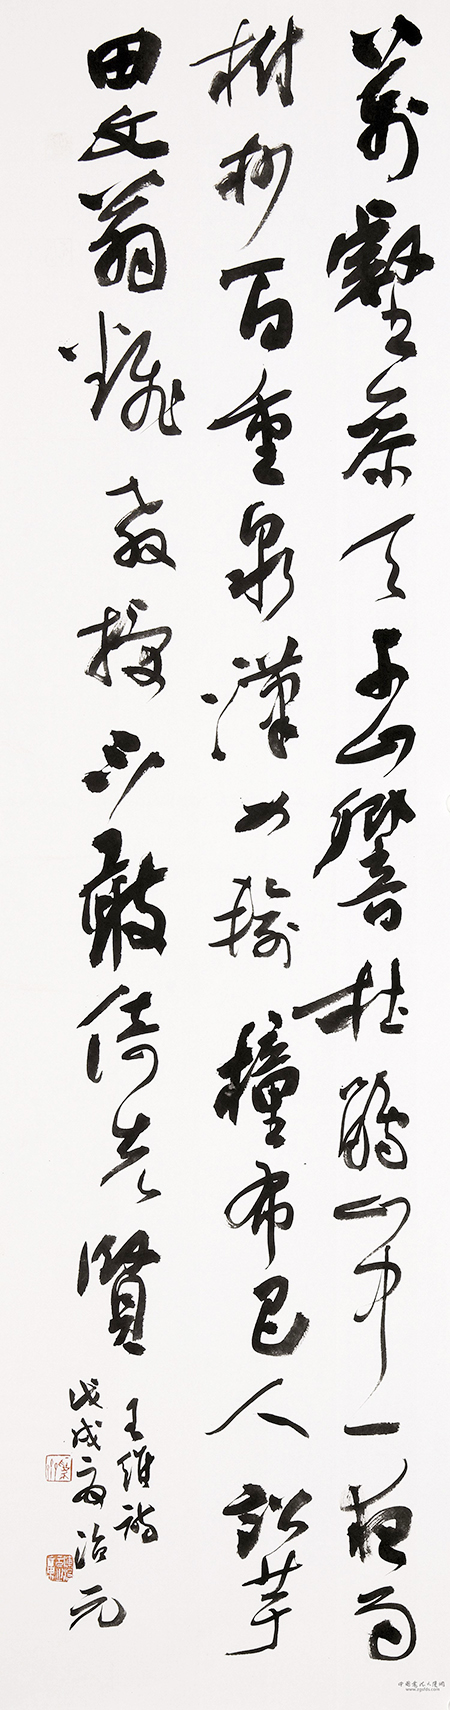 萬壑參天千山響杜鵑山中一夜雨
树杪百重泉漢女輸橦布巴人訟芋
田文翁翻教授不敢倚先賢
王維詩
戊戌夏治元